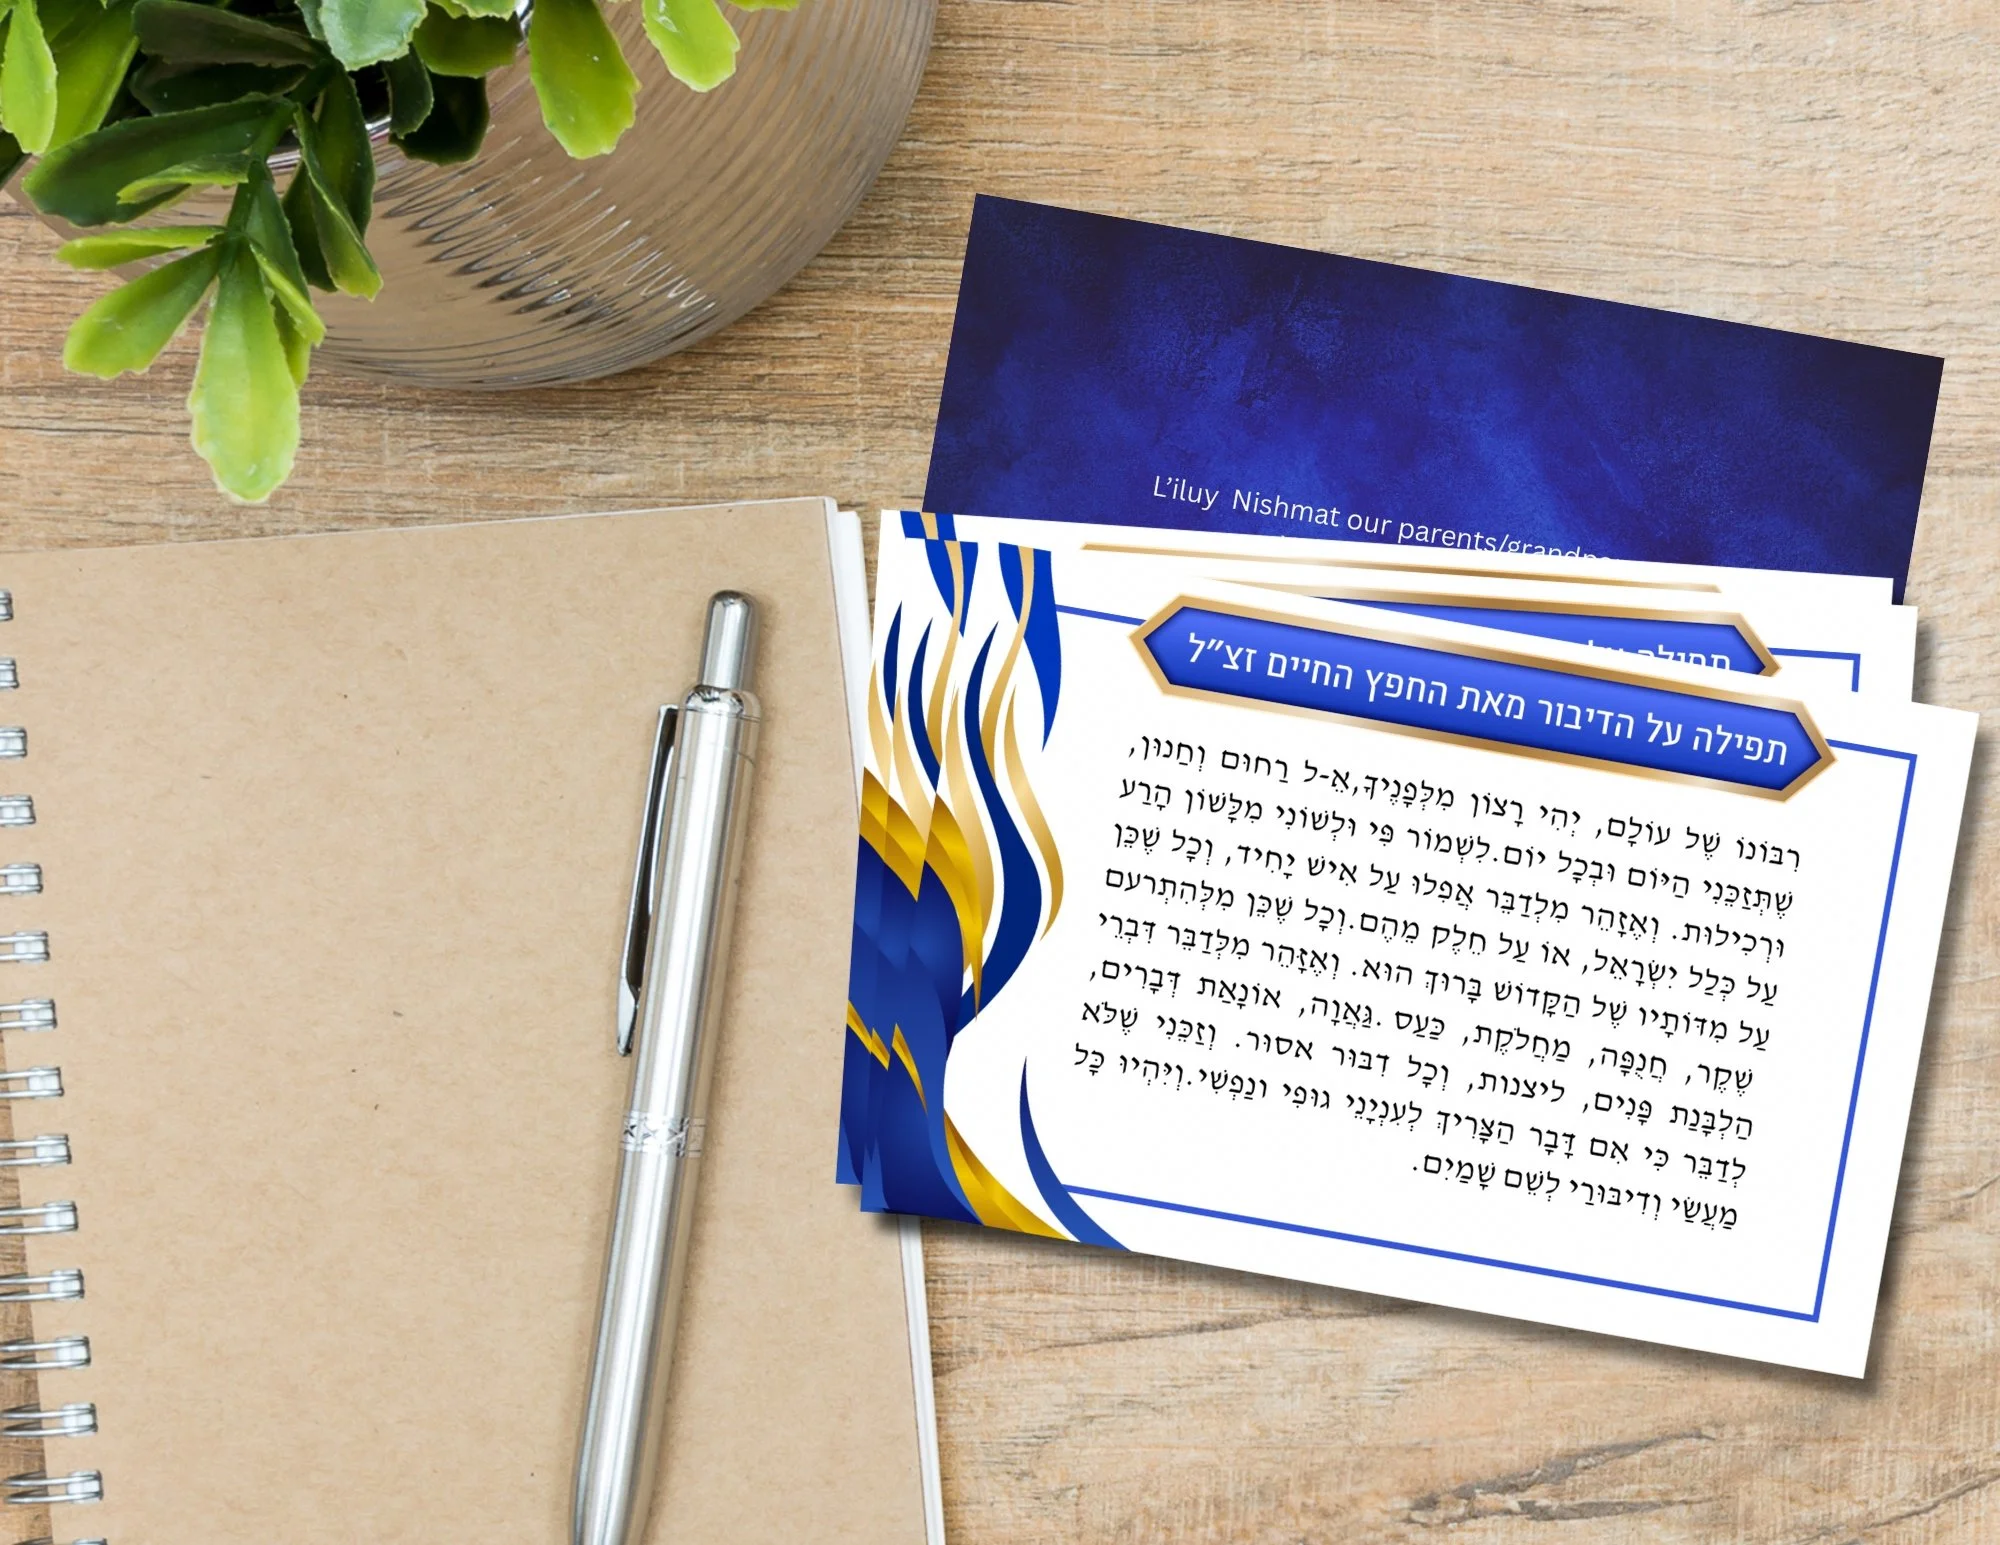 L'iluy Nishmat our parents/
תפילה על הדיבור מאת החפץ החיים זצ״ל
רִבּוֹנוֹ שֶׁל עוֹלָם, יְהִי רָצוֹן מִלְּפָנֶיךָ,אֵ-ל רַחוּם וְחַנוּן,
שֶׁתְּזַכֵּנִי הַיּוֹם וּבְכָל יוֹם.לִשְׁמוֹר פִּי וּלְשׁוֹנִי מִלָּשׁוֹן הָרַע
וּרְכִילוּת. וְאֶזָּהֵר מִלְדַבֵּר אֲפִלוּ עַל אִישׁ יָחִיד, וְכָל שֶׁכֵּן
עַל כְּלַל יִשְׂרָאֵל, אוֹ עַל חֵלֶק מֵהֶם.וְכָל שֶׁכֵּן מִלְּהִתְרעם
עַל מִדּוֹתָיו שֶׁל הַקָּדוֹשׁ בָּרוּךְ הוּא. וְאֶזָּהֵר מִלְּדַבֵּר דִּבְרֵי
שֶׁקֶר, חֲנֻפָּה, מַחֲלֹקֶת, כַּעַס .גַּאֲוָה, אוֹנָאַת דְּבָרִים,
הַלְבָּנַת פָּנִים, ליצנות, וְכָל דִבּוּר אסוּר. וְזַכֵּנִי שֶׁלֹּא
לְדַבֵּר כִּי אִם דָּבָר הַצָּרִיךְ לְעִנְיָנֵי גוּפִי ונַפְשִׁי.וְיִהְיוּ כָּל
מַעֲשַׂי וְדִיבּוּרַי לְשֵׁם שָׁמַיִם.